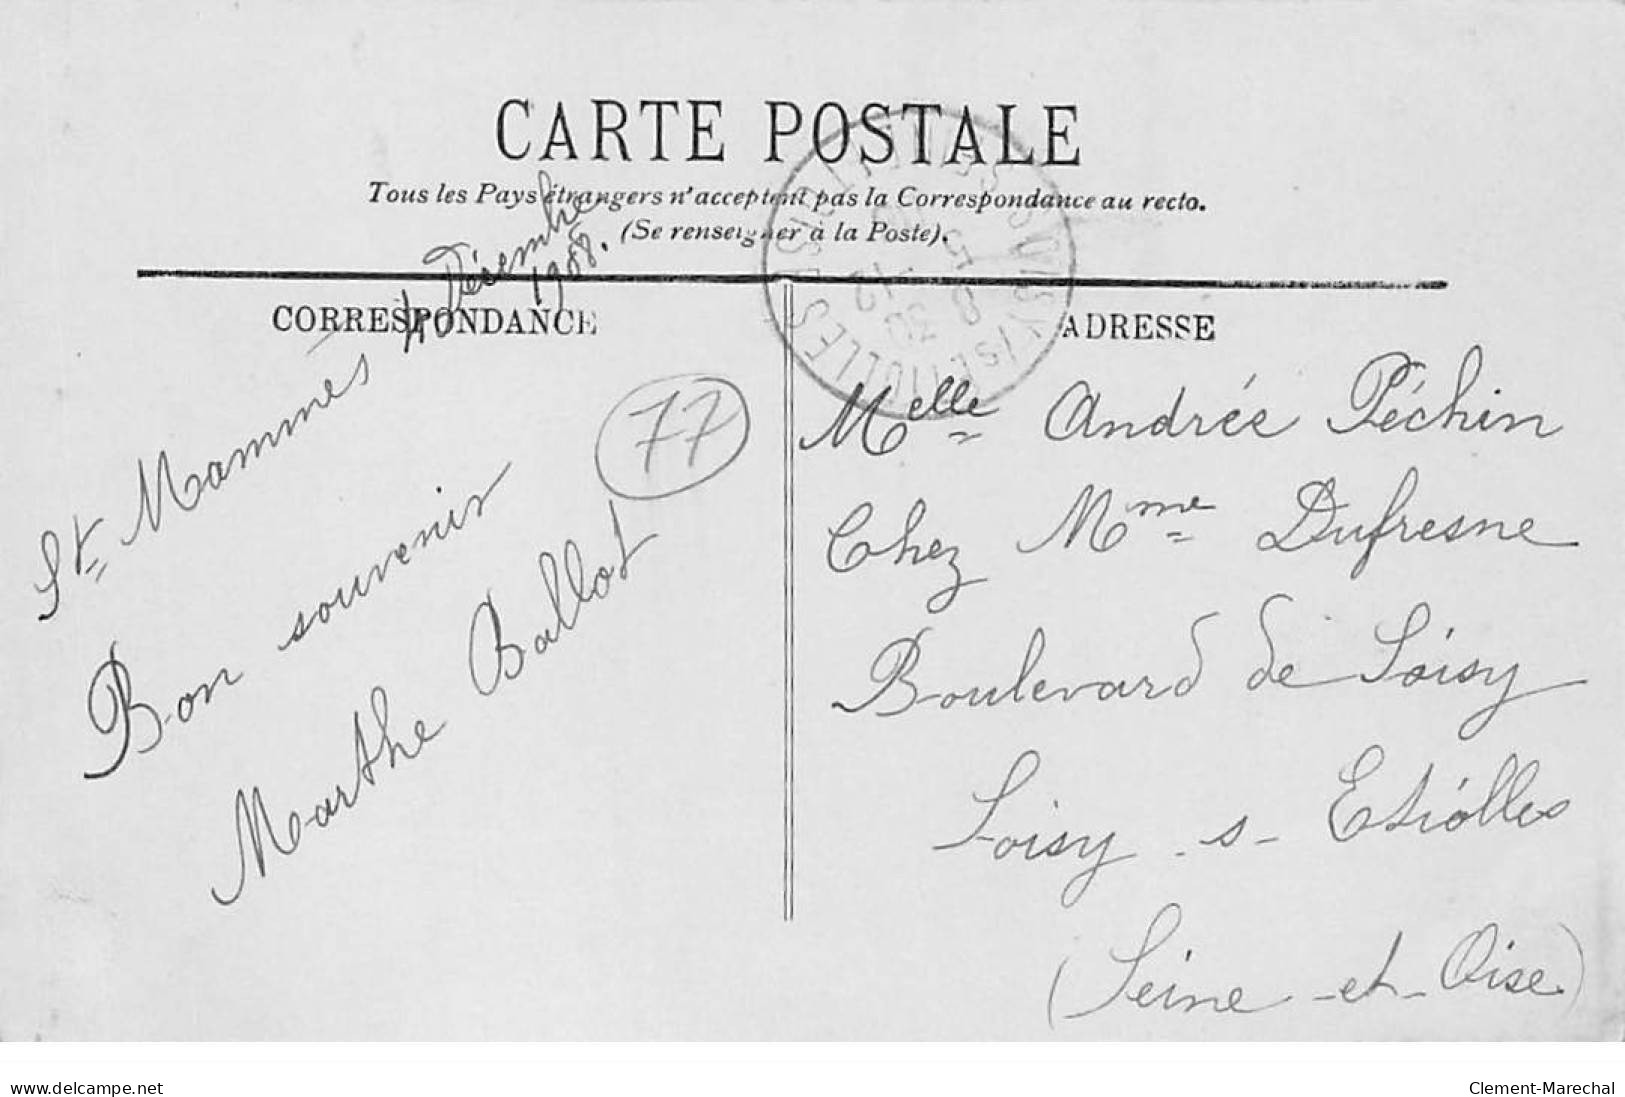 CARTE POSTALE
Tous les Pays étrangers n'acceptent pas la Correspondance au recto.
(Se renseigner à la Poste).
CORRESPONDANCE
St. Mammes 4 Décembre
1908.
Bon souvenir
Marthe Ballot
77
ADRESSE
Melle Andrée Péchin
Chez Mme Dufresne
Boulevard de Soisy
Soisy - s - Etiolles
(Seine - et - Oise)
www.delcampe.net
Clement-Marechal